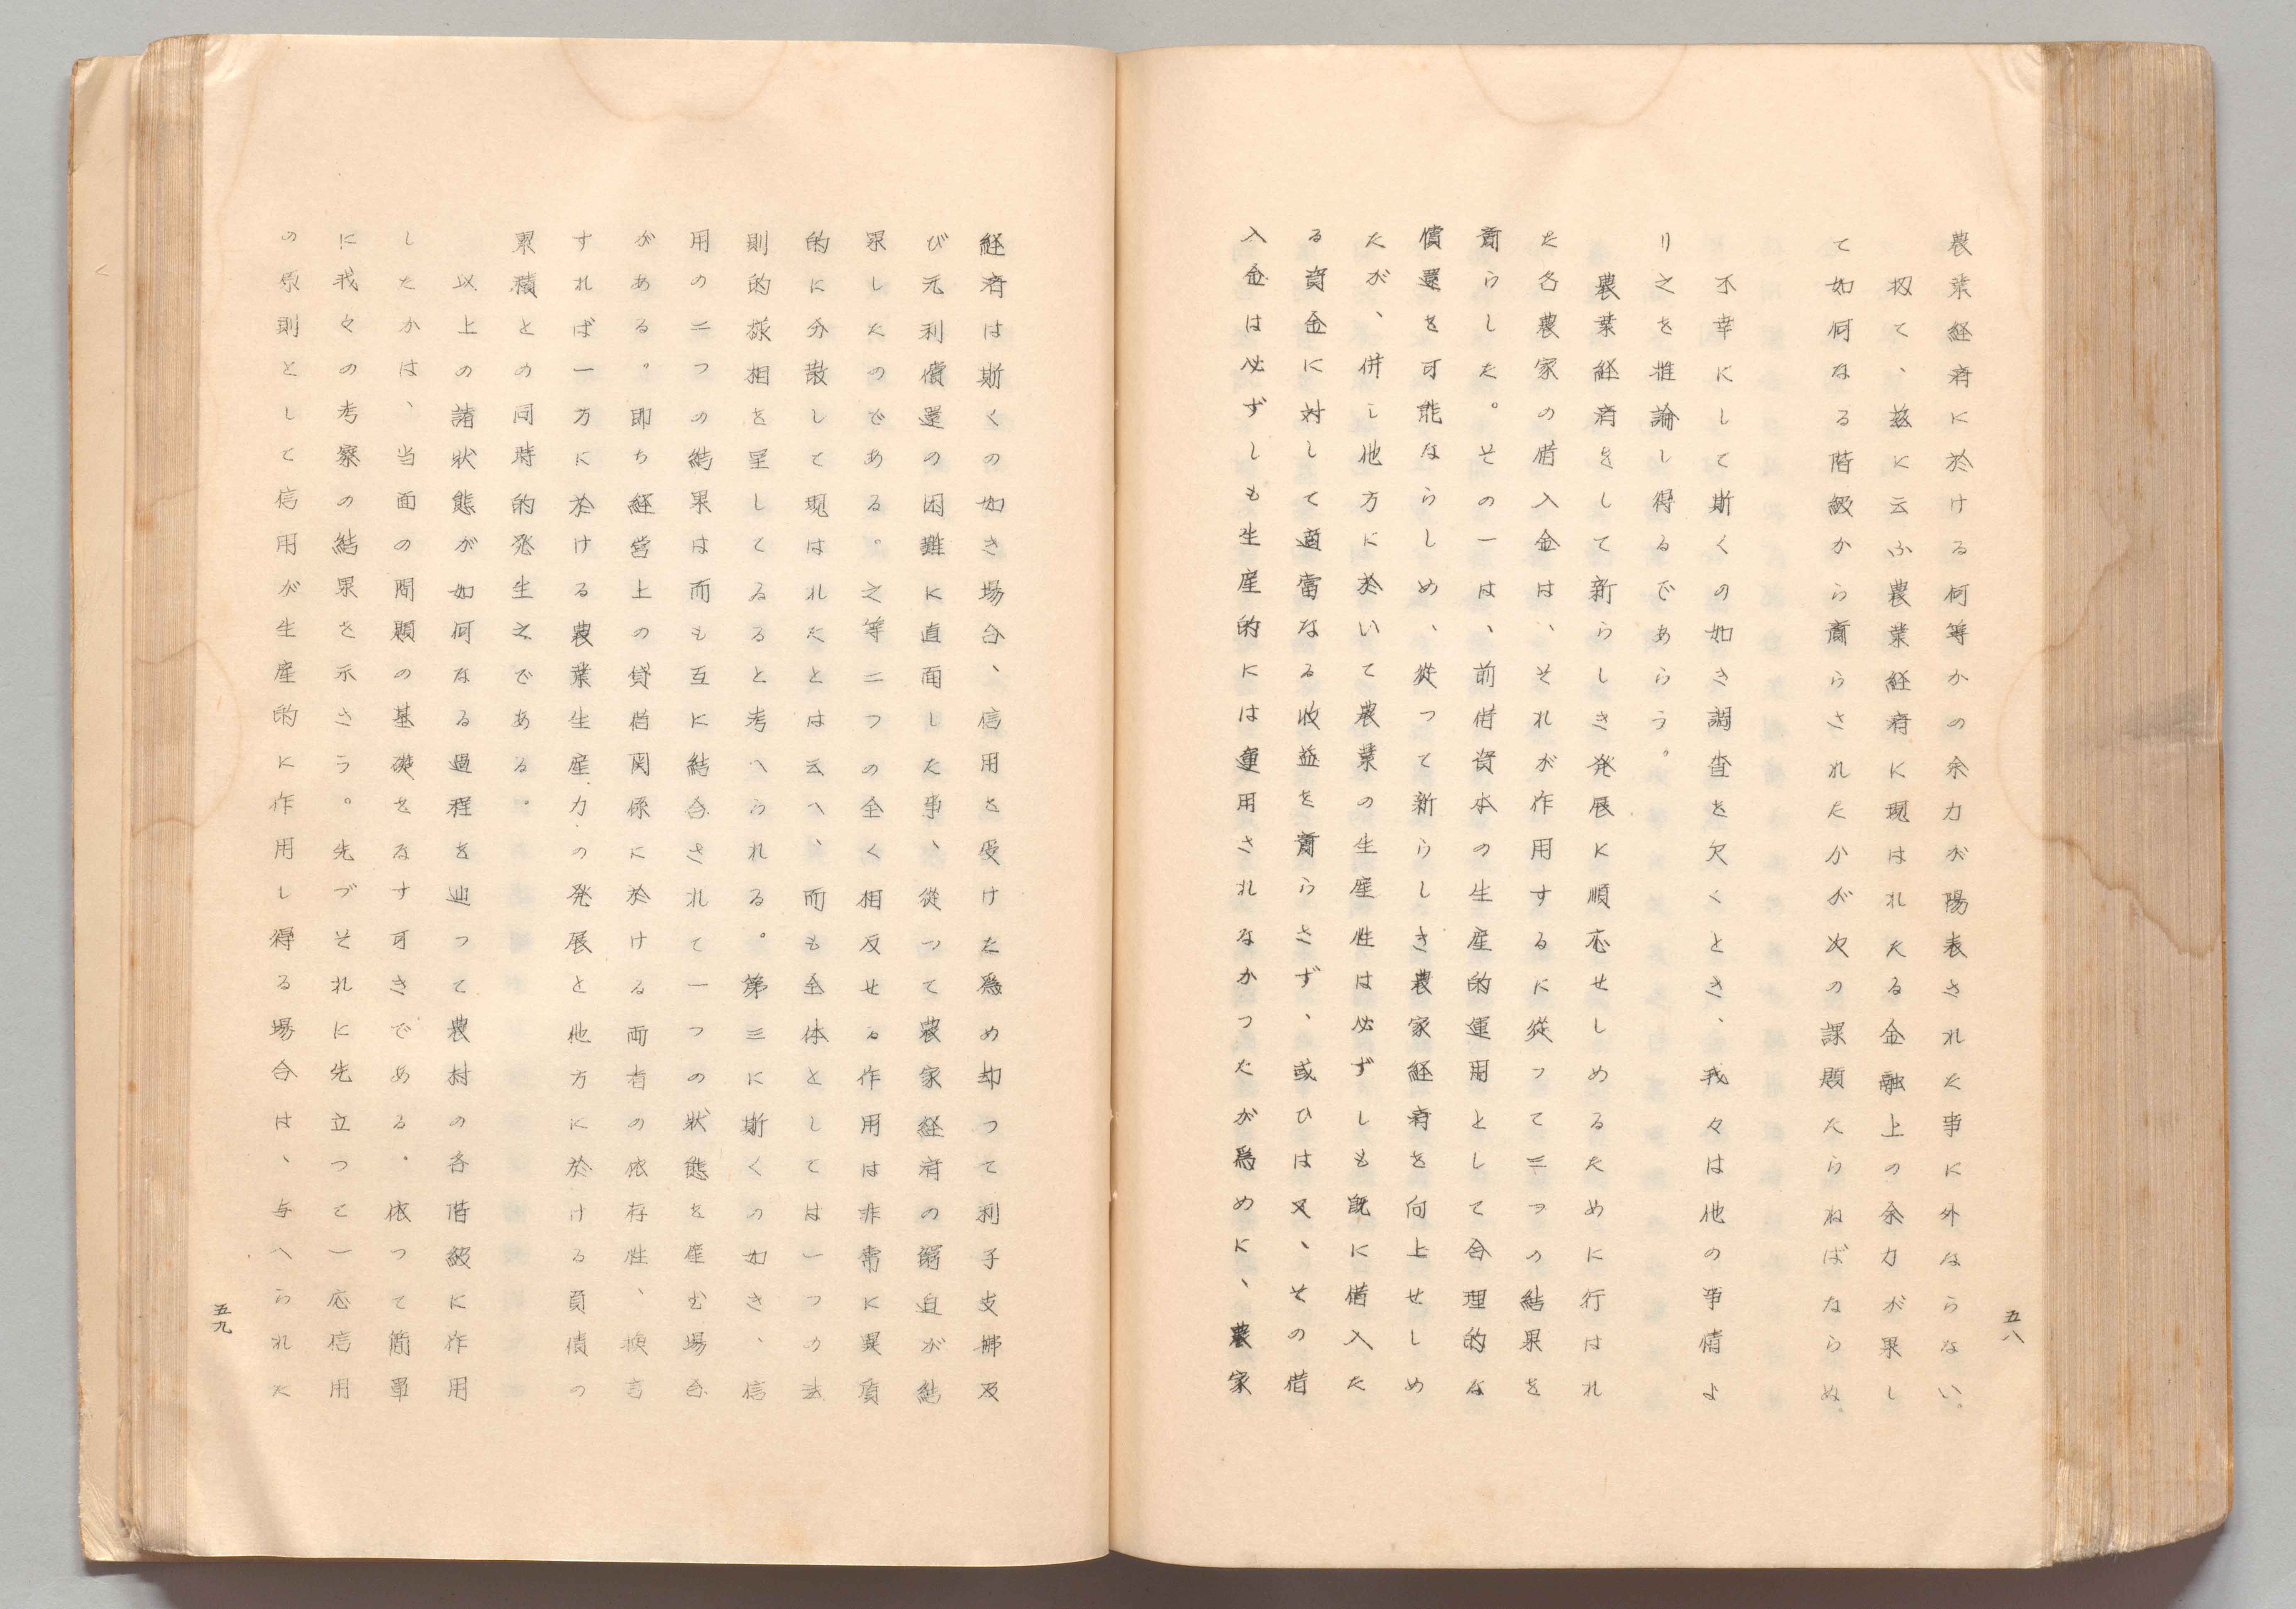 農業経済に於ける何等かの余力が陽表された事に外ならない。
扨て、茲に云ふ農業経済に現はれたる金融上の余力が果し
て如何なる階級から齎らされたかが次の課題たらねばならぬ。
不幸にして斯くの如き調査を欠くとき、我々は他の事情よ
り之を推論し得るであらう。
農業経済をして新らしき発展に順応せしめるために行はれ
た各農家の借入金は、それが作用するに従つて三つの結果を
齎らした。その一は、前借資本の生産的運用として合理的な
償還を可能ならしめ、従つて新らしき農家経済を向上せしめ
たが、併し他方に於いて農業の生産性は必ずしも既に借入た
る資金に対して適當なる收益を齎らさず、或ひは又、その借
入金は必ずしも生産的には運用されなかつたが爲めに、農家
五八
経済は斯くの如き場合、信用を受けた爲め却つて利子支拂及
び元利償還の困難に直面した事、従つて農家経済の窮迫が結
果したのである。之等二つの全く相反せる作用は非常に異質
的に分散して現はれたとは云へ、而も全体としては一つの法
則的様相を呈してゐると考へられる。第三に斯くの如き、信
用の二つの結果は而も互に結合されて一つの狀態を産む場合
がある。即ち経営上の貸借関係に於ける両者の依存性、換言
すれば一方に於ける農業生産力の発展と他方に於ける負債の
累積との同時的発生之である。
以上の諸狀態が如何なる過程を辿つて農村の各階級に作用
したかは、当面の問題の基礎をなす可きである。依つて簡單
に我々の考察の結果を示さう。先づそれに先立つて一応信用
の原則として信用が生産的に作用し得る場合は、与へられた
五九